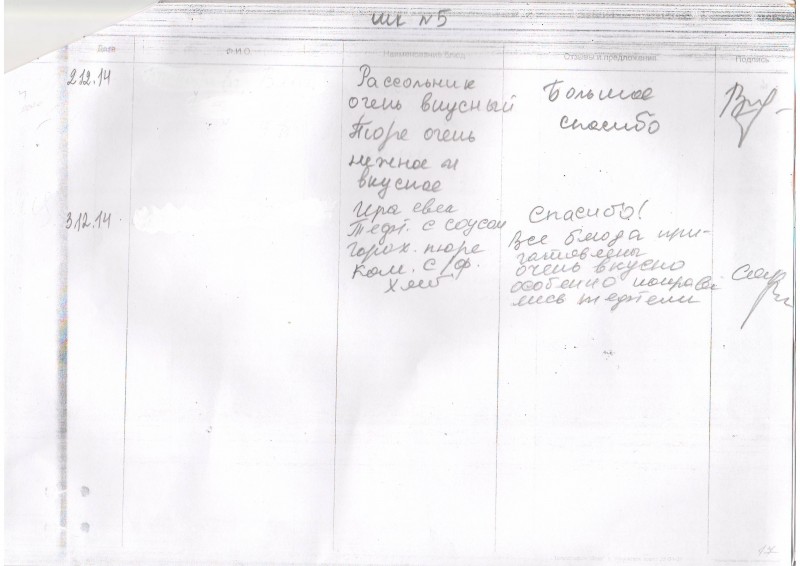 шк №5
Дата Ф.И.О. Наименование блюд Отзывы и предложения Подпись
2.12.14 Рассольник Большое
очень вкусный спасибо
Пюре очень
нежное и
вкусное
3.12.14 Икра свек Спасибо!
Тефт. с соусом Все блюда при-
горох. пюре готовлены
Ком. с/ф. очень вкусно
Хлеб особенно понрави
лись тефтели